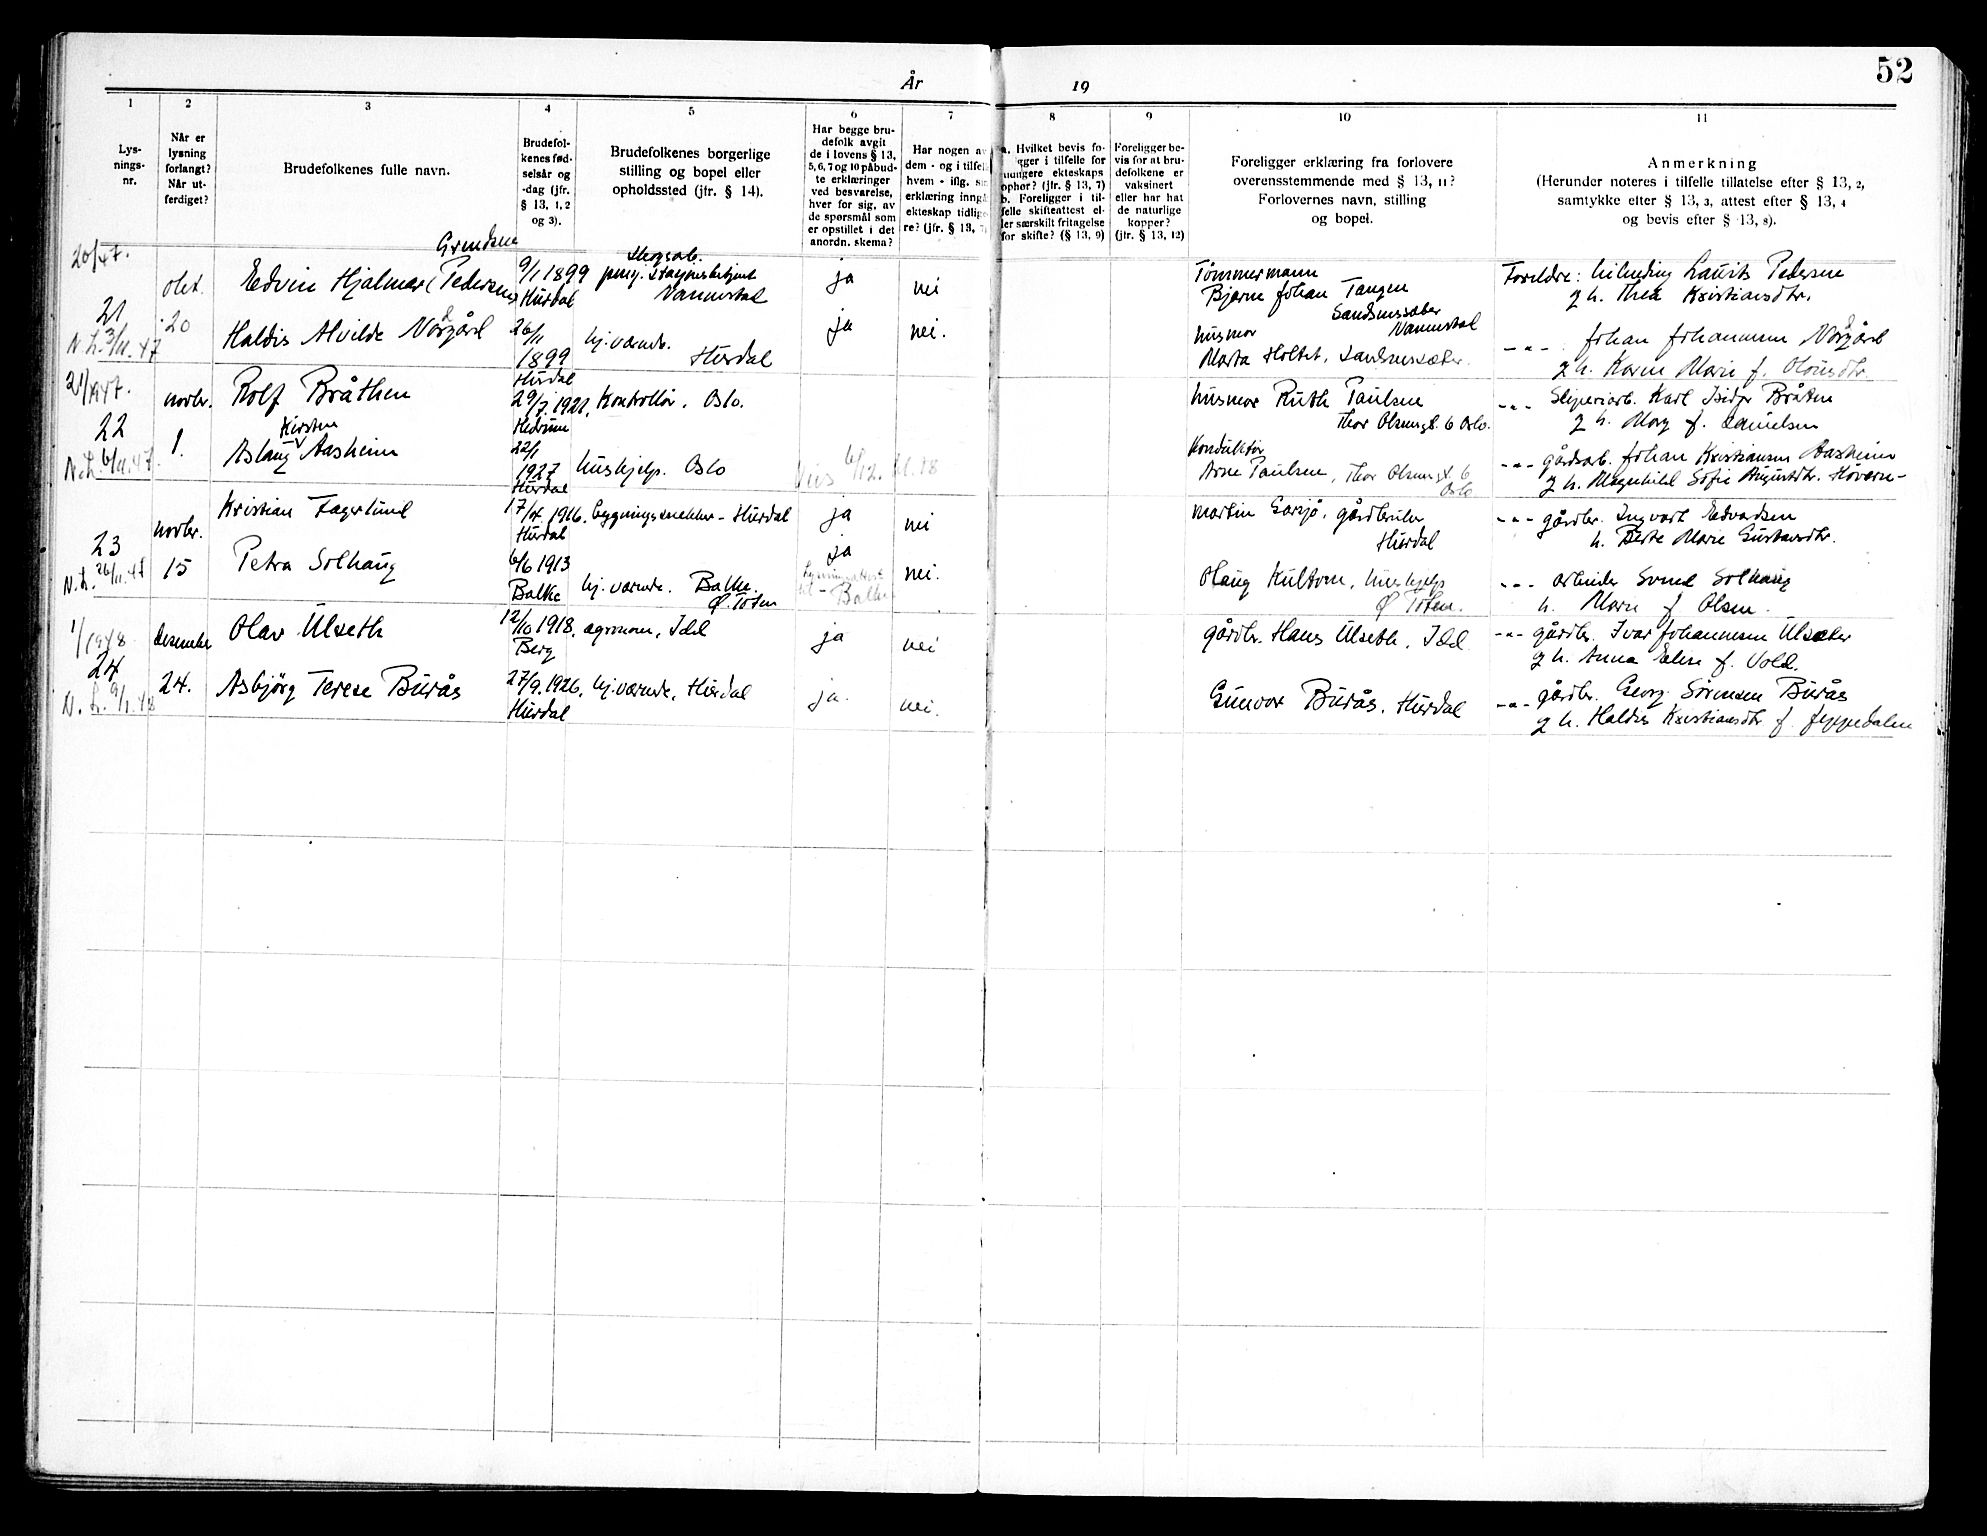 52
År 19
1 2 3 4 5 6 7 8 9 10 11
Lys-
nings-
nr.
Når er
lysning
forlangt?
Når ut-
ferdiget?
Brudefolkenes fulle navn.
Brudefol-
kenes fød-
selsår og
-dag (jfr.
§ 13, 1, 2
og 3).
Brudefolkenes borgerlige
stilling og bopel eller
opholdssted (jfr. § 14).
Har begge bru-
defolk avgit
de i lovens § 13,
5, 6, 7 og 10 påbud-
te erklæringer
ved besvarelse,
hver for sig, av
de spørsmål som
er opstillet i det
anordn. skema?
Har nogen av
dem - og i tilfel
hvem - iflg. sin
erklæring inngå
ekteskap tidlige
re? (jfr. § 13, 7)
a. Hvilket bevis fo-
gger i tilfelle for
ekteskaps
ophør? (jfr. § 13, 7)
b. Foreligger i til-
felle skifteattest el-
ler særskilt fritagelse
for skifte? (§ 13, 9)
Foreligger be-
vis for at bru-
defolkene er
vaksinert
eller har hat
de naturlige
kopper?
(jfr. § 13, 12)
Foreligger erklæring fra forlovere
overensstemmende med § 13, 11?
Forlovernes navn, stilling
og bopel.
Anmerkning
(Herunder noteres i tilfelle tillatelse efter § 13, 2,
samtykke efter § 13, 3, attest efter § 13, 4
og bevis efter § 13, 8).
20/47.
21
N. L. 3/11.47
okt.
20
Edvin Hjalmar (Pedersen)
9/1 1899
Hurdal
Vannvstal
ja
nei
Tømmermann
Bjarne Johan Tangen
Foreldre: Laurits Pedersen
g h. Thea Kristiansdtr.
Haldis Alvilde Norgård
26/1
1899
Hurdal
hj.værnde.
Hurdal
ja
nei.
husmor
Marta Holtet,
-"- Johan Johannesen Norgård
g h. Karen Marie f. Olausdtr.
21/1947.
22
N. L. 6/11.47.
novbr.
1.
Rolf Bråthen
29/7 1921,
Hedrum
Kontrollør. Oslo.
husmor Ruth Paulsen
Thor Olsensgt. 6 Oslo.
-"- Sliperiarb. Karl Isidor Bråten
g h. Mary f. Danielsen
Kirsten
Aslaug Aasheim
22/1
1927
Hurdal
hushjelp. Oslo
Konduktør
Arne Paulsen, Thor Olsensgt. 6
Oslo
-"- gårdsarb. Johan Kristiansen Aasheim
g h. Magnhild Sofie Augustdtr.
23
N. L. 26/11.47
novbr.
15
Kristian Fagerlund
17/4. 1916.
Hurdal
bygningssnekker - Hurdal
ja
nei
Martin Garsjø, gårdbruker
Hurdal
-"- gårdbr. Ingvart Edvardsen
h. Berte Marie Gustavsdtr.
Petra Solhaug
6/6 1913
Balke
hj. værnde. Balke.
Ø. Toten
ja
Balke
nei.
Olaug Kultom, hushjelp
Ø Toten.
-"- arbeider Svend Solhaug
h. Marie f Olsen.
1/1948
24
N. L. 9/1.48
desember
24.
Olav Ulseth
12/10 1918.
Berg
agronom, Idd
ja
nei
gårdbr. Hans Ulseth, Idd
-"- gårdbr. Ivar Johannesen Ulsæter
g h. Anna Elise f. Vold.
Asbjörg Terese Burås
27/9. 1926,
Hurdal
hj.værnde, Hurdal
ja.
nei.
Gunvor Burås, Hurdal
-"- gårdbr. Georg Sörensen Burås
g h. Haldis Kristiansdtr f. Jeppedalen